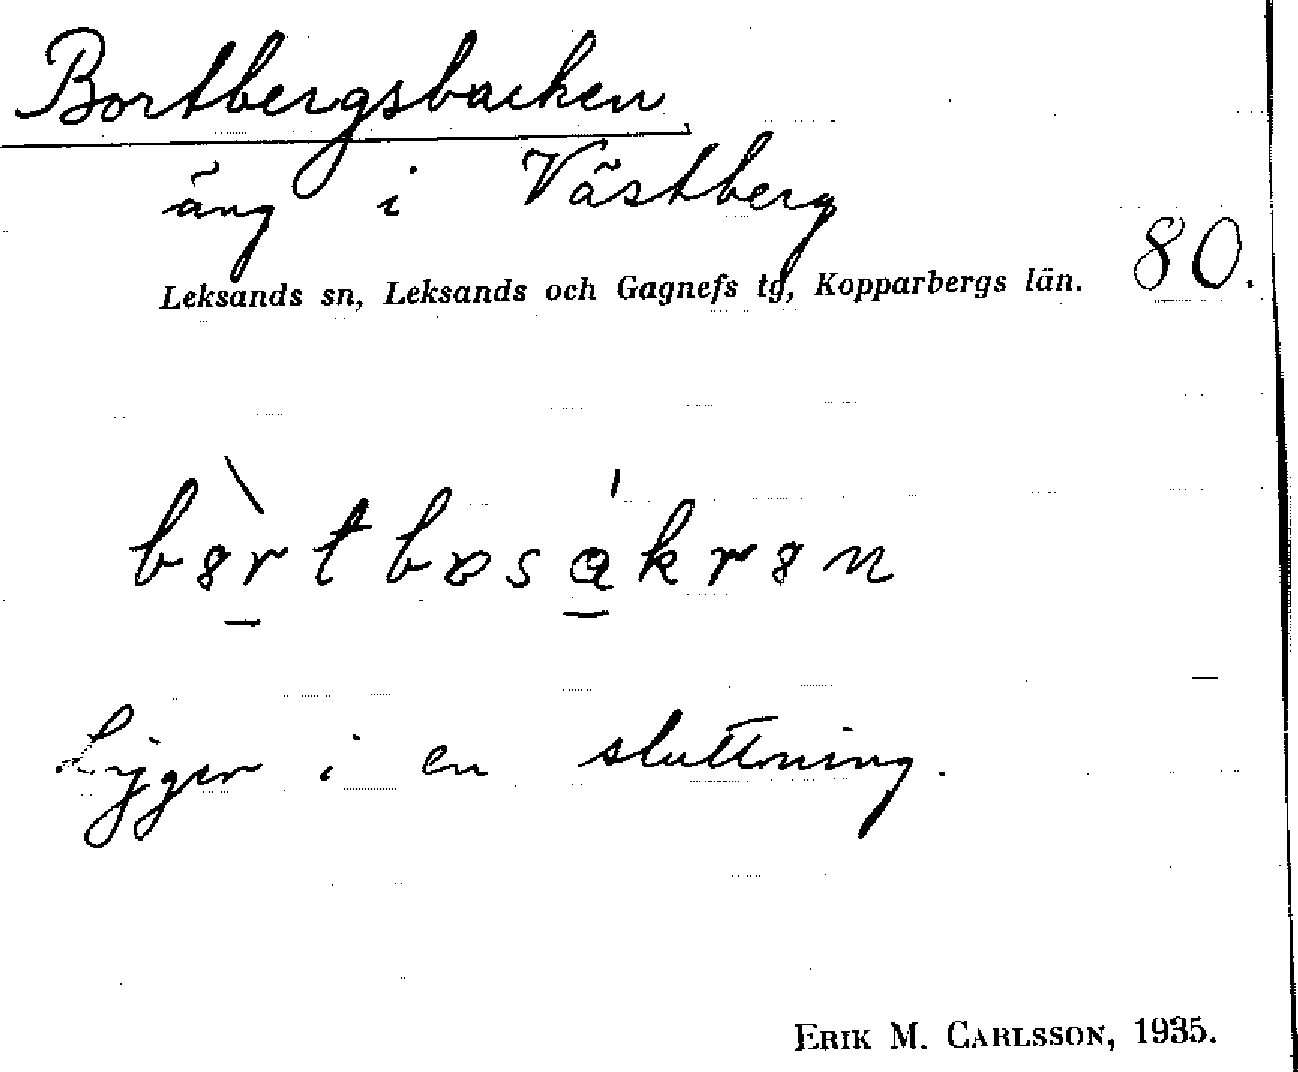 Bortbergsbacken,
äng i Västberg
Leksands sn, Leksands och Gagnefs tg, Kopparbergs län.
80.
Ligger i en sluttning.
ERIK M. CARLSSON, 1935.